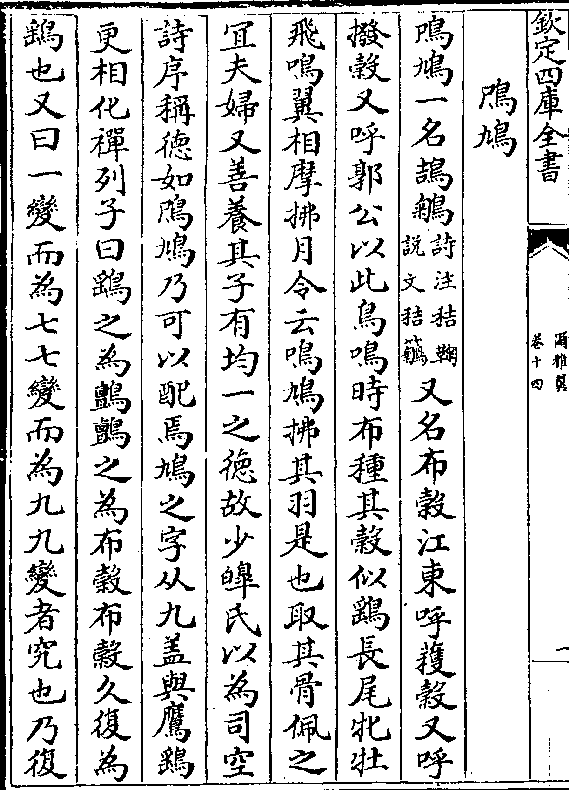 欽定四庫全書
爾雅翼
卷十四
一
鳲鳩
鳲鳩一名鴶鵴詩注秸鞠說文秸𥷚又名布穀江東呼穫穀又呼
撥穀又呼郭公以此鳥鳴時布種其穀似鷂長尾牝牡
飛鳴翼相摩拂月令云鳴鳩拂其羽是也取其骨佩之
宜夫婦又善養其子有均一之德故少皥氏以為司空
詩序稱德如鳲鳩乃可以配焉鳩之字从九盖與鷹鷂
更相化禪列子曰鷂之為鸇鸇之為布穀布穀久復為
鷂也又曰一變而為七七變而為九九變者究也乃復